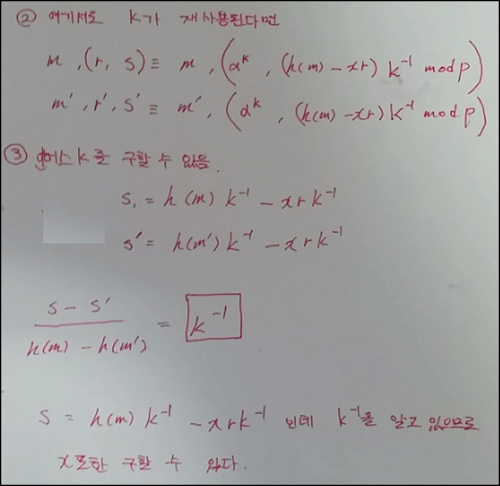 ② 여기서도 k가 재사용된다면
m , (r, s) ≡ m , (α^k , (h(m) - xr) k^-1 mod p)
m' , r', s' ≡ m' , (α^k , (h(m) - xr) k^-1 mod p)
③ 인버스 k를 구할 수 있음.
s, = h(m) k^-1 - x r k^-1
s' = h(m') k^-1 - x r k^-1
s - s' / h(m) - h(m') = k^-1
s = h(m) k^-1 - x r k^-1 인데 k^-1을 알고 있으므로
x또한 구할 수 있다.